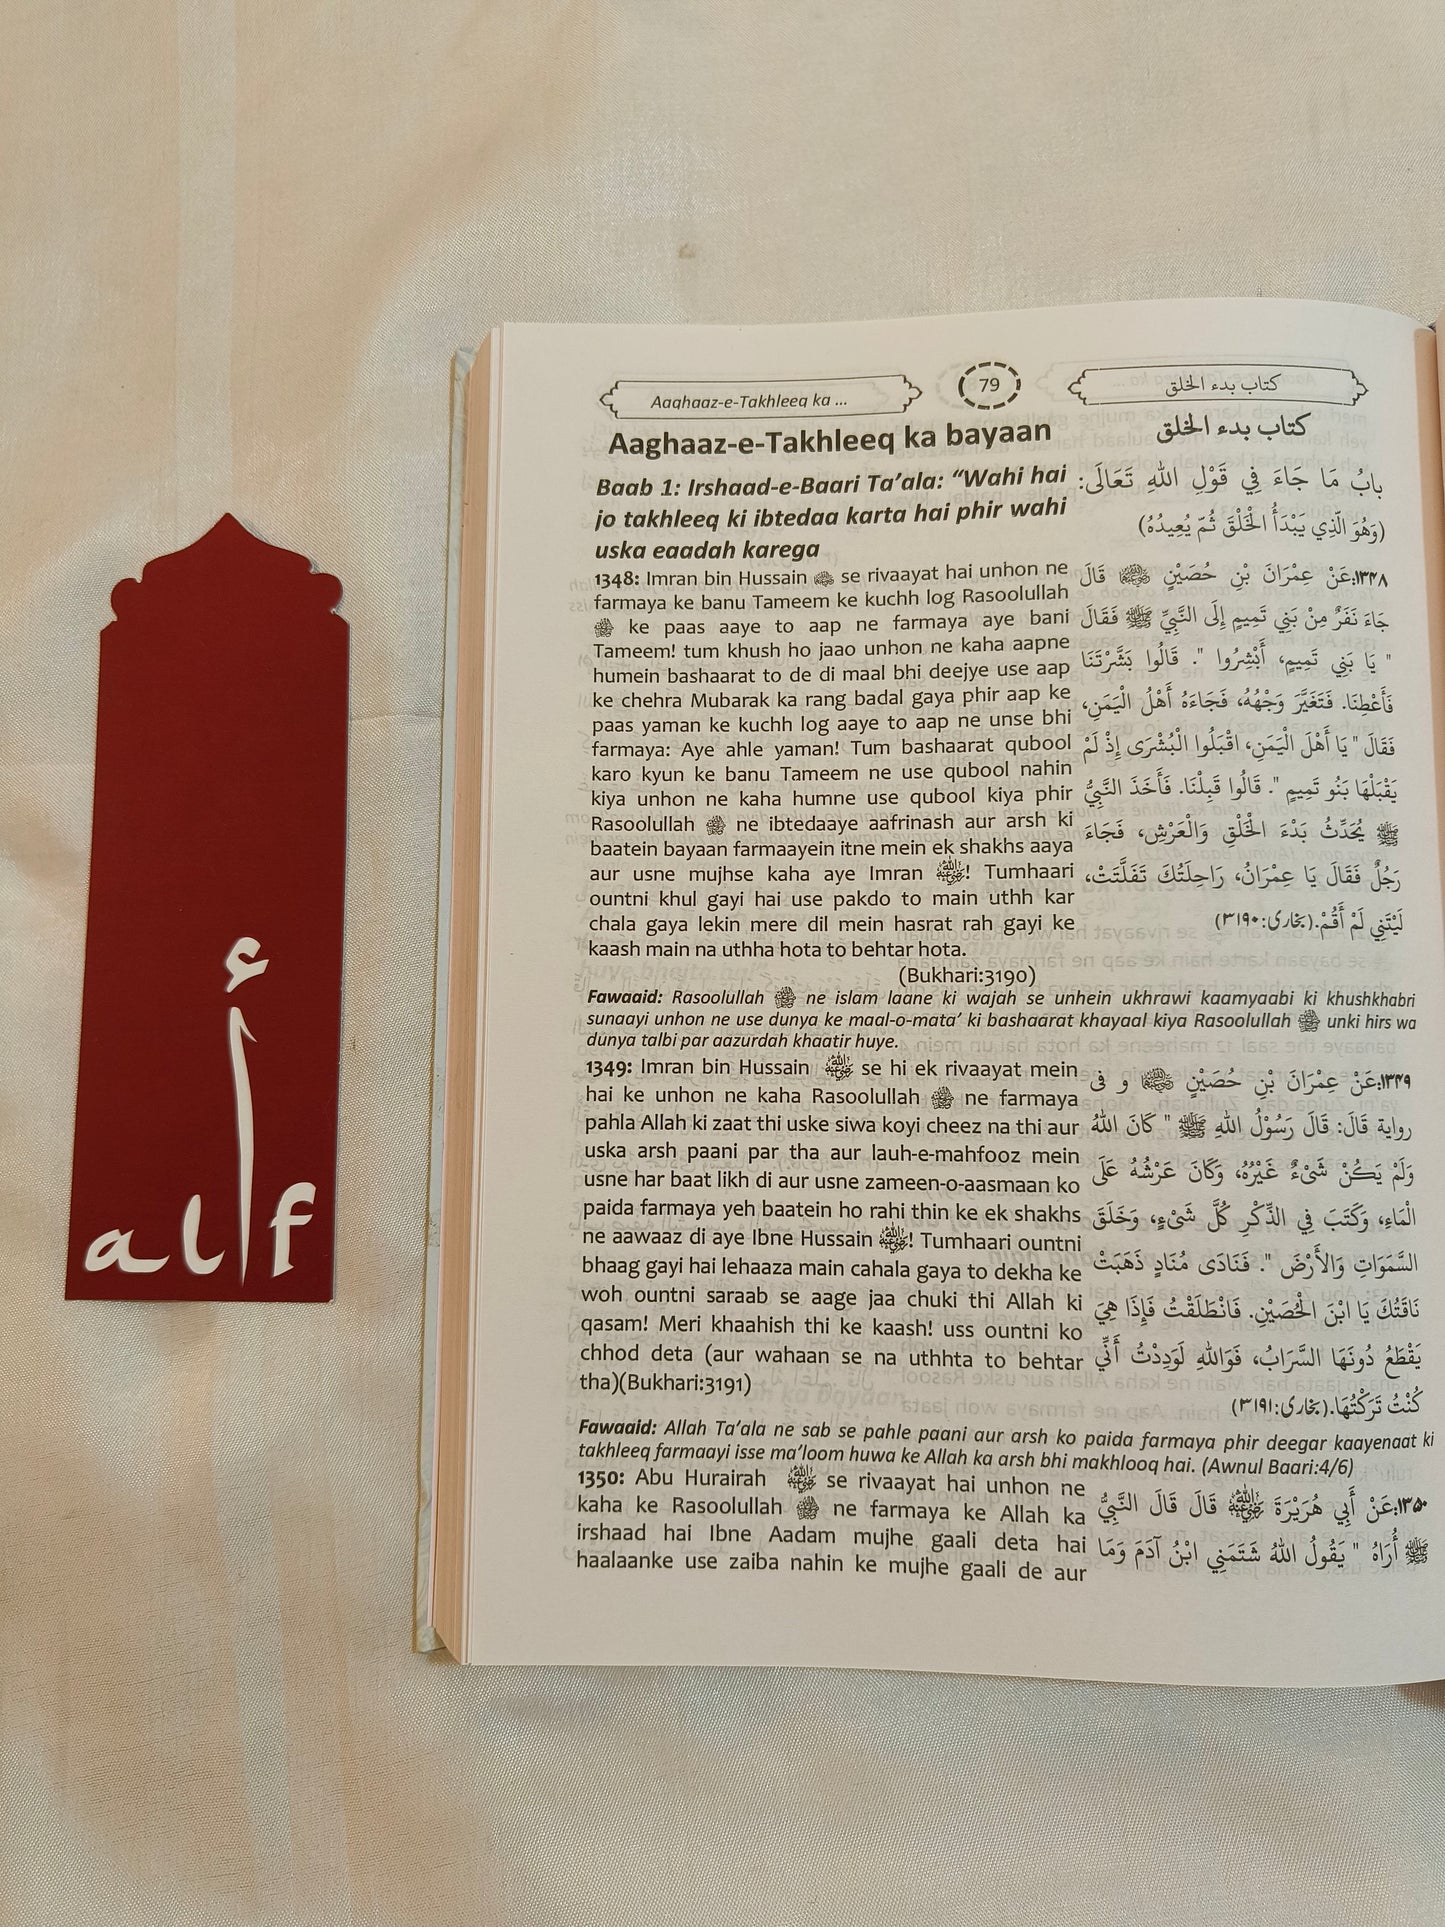 أ
alif
Aaghaaz-e-Takhleeq ka ...
79
كتاب بدء الخلق
Aaghaaz-e-Takhleeq ka bayaan
Baab 1: Irshaad-e-Baari Ta’ala: “Wahi hai
jo takhleeq ki ibtedaa karta hai phir wahi
uska eaadah karega
1348: Imran bin Hussain ﷺ se rivaayat hai unhon ne
farmaya ke banu Tameem ke kuchh log Rasoolullah
ﷺ ke paas aaye to aap ne farmaya aye bani
Tameem! tum khush ho jaao unhon ne kaha aapne
humein bashaarat to de di maal bhi deejye use aap
ke chehra Mubarak ka rang badal gaya phir aap ke
paas yaman ke kuchh log aaye to aap ne unse bhi
farmaya: Aye ahle yaman! Tum bashaarat qubool
karo kyun ke banu Tameem ne use qubool nahin
kiya unhon ne kaha humne use qubool kiya phir
Rasoolullah ﷺ ne ibtedaaye aafrinash aur arsh ki
baatein bayaan farmaayein itne mein ek shakhs aaya
aur usne mujhse kaha aye Imran رضي الله عنه! Tumhaari
ountni khul gayi hai use pakdo to main uthh kar
chala gaya lekin mere dil mein hasrat rah gayi ke
kaash main na uthha hota to behtar hota.
(Bukhari:3190)
كتاب بدء الخلق
بابُ مَا جَاءَ فِي قَوْلِ اللهِ تَعَالَى:
(وَهُوَ الَّذِي يَبْدَأُ الْخَلْقَ ثُمَّ يُعِيدُهُ)
۱۳۴۸:عَنْ عِمْرَانَ بْنِ حُصَيْنٍ رضي الله عنه قَالَ
جَاءَ نَفَرٌ مِنْ بَنِي تَمِيمٍ إِلَى النَّبِيِّ ﷺ فَقَالَ
" يَا بَنِي تَمِيمٍ، أَبْشِرُوا ". قَالُوا بَشَّرْتَنَا
فَأَعْطِنَا. فَتَغَيَّرَ وَجْهُهُ، فَجَاءَهُ أَهْلُ الْيَمَنِ،
فَقَالَ " يَا أَهْلَ الْيَمَنِ، اقْبَلُوا الْبُشْرَى إِذْ لَمْ
يَقْبَلْهَا بَنُو تَمِيمٍ ". قَالُوا قَبِلْنَا. فَأَخَذَ النَّبِيُّ
ﷺ يُحَدِّثُ بَدْءَ الْخَلْقِ وَالْعَرْشِ، فَجَاءَ
رَجُلٌ فَقَالَ يَا عِمْرَانُ، رَاحِلَتُكَ تَفَلَّتَتْ،
لَيْتَنِي لَمْ أَقُمْ.(بخاری:۳۱۹۰)
Fawaaid: Rasoolullah ﷺ ne islam laane ki wajah se unhein ukhrawi kaamyaabi ki khushkhabri
sunaayi unhon ne use dunya ke maal-o-mata’ ki bashaarat khayaal kiya Rasoolullah ﷺ unki hirs wa
dunya talbi par aazurdah khaatir huye.
1349: Imran bin Hussain رضي الله عنه se hi ek rivaayat mein
hai ke unhon ne kaha Rasoolullah ﷺ ne farmaya
pahla Allah ki zaat thi uske siwa koyi cheez na thi aur
uska arsh paani par tha aur lauh-e-mahfooz mein
usne har baat likh di aur usne zameen-o-aasmaan ko
paida farmaya yeh baatein ho rahi thin ke ek shakhs
ne aawaaz di aye Ibne Hussain رضي الله عنه! Tumhaari ountni
bhaag gayi hai lehaaza main cahala gaya to dekha ke
woh ountni saraab se aage jaa chuki thi Allah ki
qasam! Meri khaahish thi ke kaash! uss ountni ko
chhod deta (aur wahaan se na uthhta to behtar
tha)(Bukhari:3191)
۱۳۴۹:عَنْ عِمْرَانَ بْنِ حُصَيْنٍ رضي الله عنه و فی
رواية قَالَ: قَالَ رَسُوْلُ اللهِ ﷺ " كَانَ اللهُ
وَلَمْ يَكُنْ شَىْءٌ غَيْرُهُ، وَكَانَ عَرْشُهُ عَلَى
الْمَاءِ، وَكَتَبَ فِي الذِّكْرِ كُلَّ شَىْءٍ، وَخَلَقَ
السَّمَوَاتِ وَالأَرْضَ ". فَنَادَى مُنَادٍ ذَهَبَتْ
نَاقَتُكَ يَا ابْنَ الْحُصَيْنِ. فَانْطَلَقْتُ فَإِذَا هِيَ
يَقْطَعُ دُونَهَا السَّرَابُ، فَوَاللهِ لَوَدِدْتُ أَنِّي
كُنْتُ تَرَكْتُهَا.(بخاری:۳۱۹۱)
Fawaaid: Allah Ta’ala ne sab se pahle paani aur arsh ko paida farmaya phir deegar kaayenaat ki
takhleeq farmaayi isse ma’loom huwa ke Allah ka arsh bhi makhlooq hai. (Awnul Baari:4/6)
1350: Abu Hurairah رضي الله عنه se rivaayat hai unhon ne
kaha ke Rasoolullah ﷺ ne farmaya ke Allah ka
irshaad hai Ibne Aadam mujhe gaali deta hai
haalaanke use zaiba nahin ke mujhe gaali de aur
۱۳۵۰:عَنْ أَبِي هُرَيْرَةَ رضي الله عنه قَالَ قَالَ النَّبِيُّ
ﷺ أُرَاهُ " يَقُولُ اللهُ شَتَمَنِي ابْنُ آدَمَ وَمَا